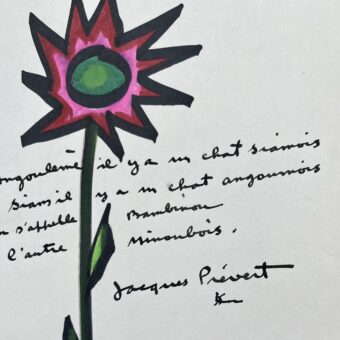 ngoulême il y a un chat siamois
siam il y a un chat angoumois
n s'appelle Bambinou
l'autre Minoubois.
Jacques Prévert